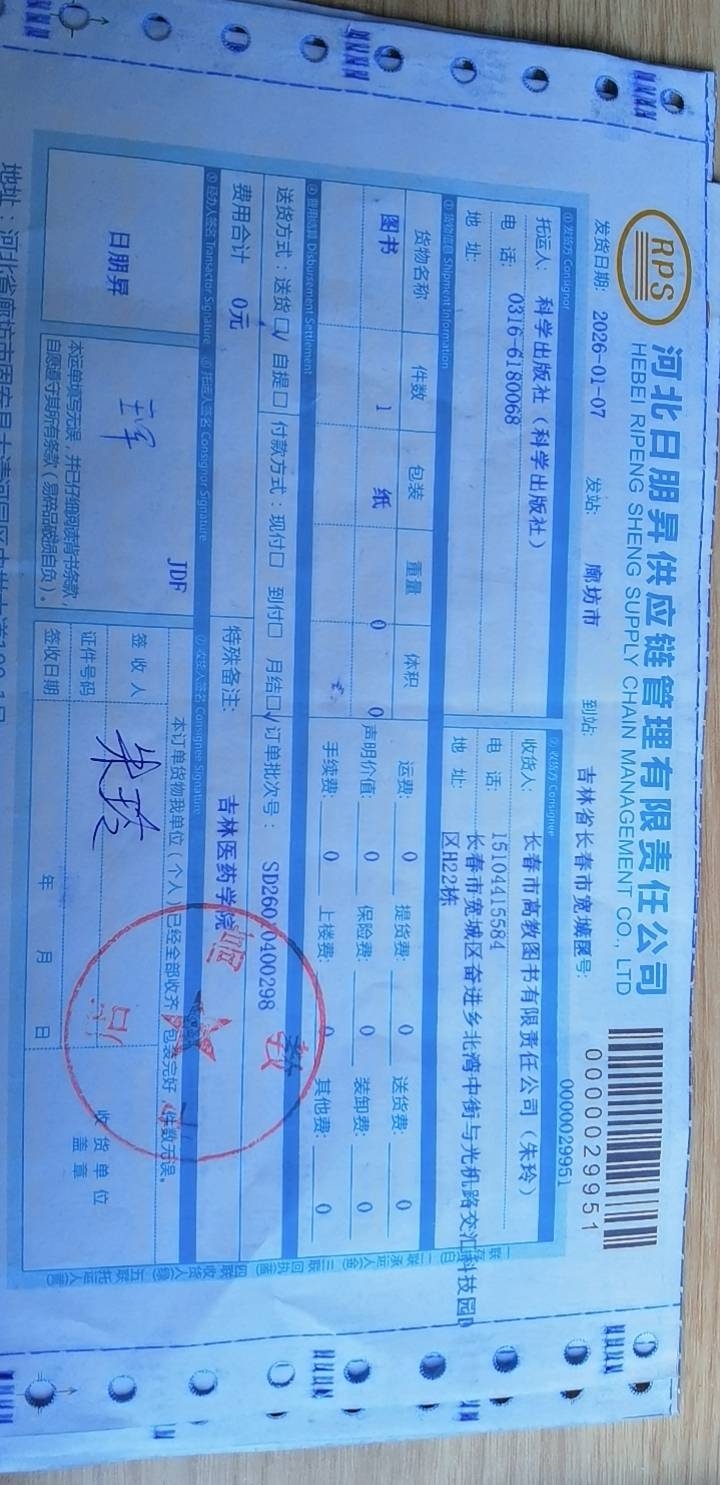 RPS
河北日朋昇供应链管理有限责任公司
HEBEI RIPENG SHENG SUPPLY CHAIN MANAGEMENT CO., LTD
0000029951
发货日期: 2026-01-07 发站: 廊坊市 到站: 吉林省长春市宽城区 号: 0000029951
①发货方 Consignor ②收货方 Consignee
托运人: 科学出版社（科学出版社） 收货人: 长春市高教图书有限责任公司（朱玲）
电 话: 0316-6180068 电话: 15104415584
地 址: 地 址: 长春市宽城区奋进乡北湾中街与光机路交汇科技园D
区H22栋
③货物信息 Shipment Information
货物名称 件数 包装 重量 体积 运费: 0 提货费: 0 送货费: 0
图书 1 纸 0 0 声明价值: 0 保险费: 0 装卸费: 0
手续费: 0 上楼费: 0 其他费: 0
④费用结算 Disbursement Settlement
送货方式：送货☐√ 自提☐ 付款方式：现付☐ 到付☐ 月结☐√ 订单批次号： SD26010400298
费用合计 0元 特殊备注: 吉林医药学院
⑤经办人签名 Transactor Signature ⑥托运人签名 Consignor Signature ⑦收货人签名 Consignee Signature
日朋昇
JDF
本订单货物我单位（个人）已经全部收齐，包装完好，件数无误。
签 收 人 朱玲
证件号码
签收日期 年 月 日
收货单位
盖 章
本运单填写无误，并已仔细阅读背书条款，
自愿遵守其所有条款（易碎品破损自负）。
一联存根(白) 二联承运人(金) 三联回执(蓝) 四联收货人(绿) 五联托运人(黄)